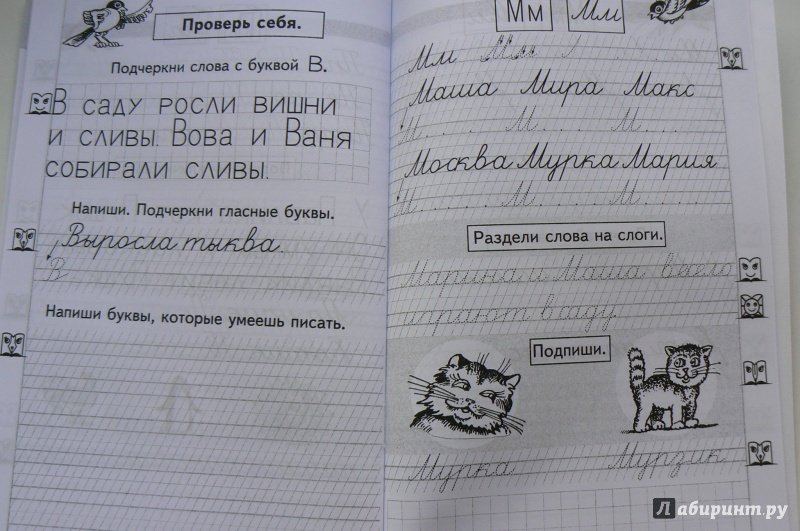 Проверь себя.
Подчеркни слова с буквой В.
В САДУ РОСЛИ ВИШНИ
И СЛИВЫ. ВОВА И ВАНЯ
СОБИРАЛИ СЛИВЫ.
Напиши. Подчеркни гласные буквы.
Выросла тыква.
В
Напиши буквы, которые умеешь писать.
Мм Мм
Мм Мм
Маша Мира Макс
М . . . . М . . . М . . .
Москва Мурка Мария
М . . . . . М . . . . М . . . .
Раздели слова на слоги.
Марина и Маша весело
играют в саду.
Подпиши.
Мурка Мурзик
Лабиринт.ру